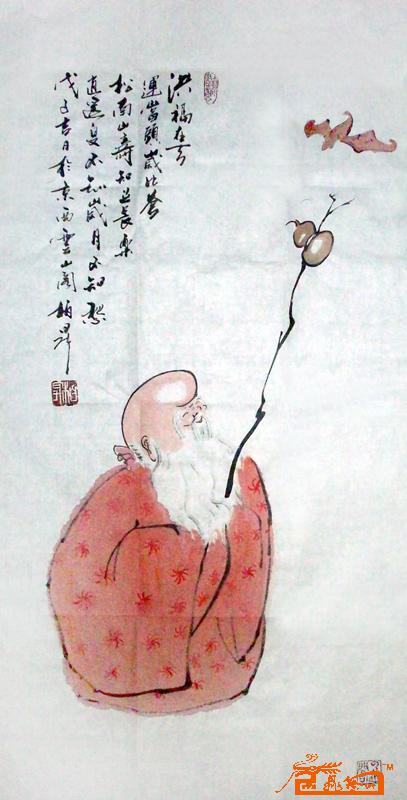 洪福在
運當頭歲比蒼
松南山壽知足長樂
不知歲月不知愁
戊子吉日於京西雲山閣